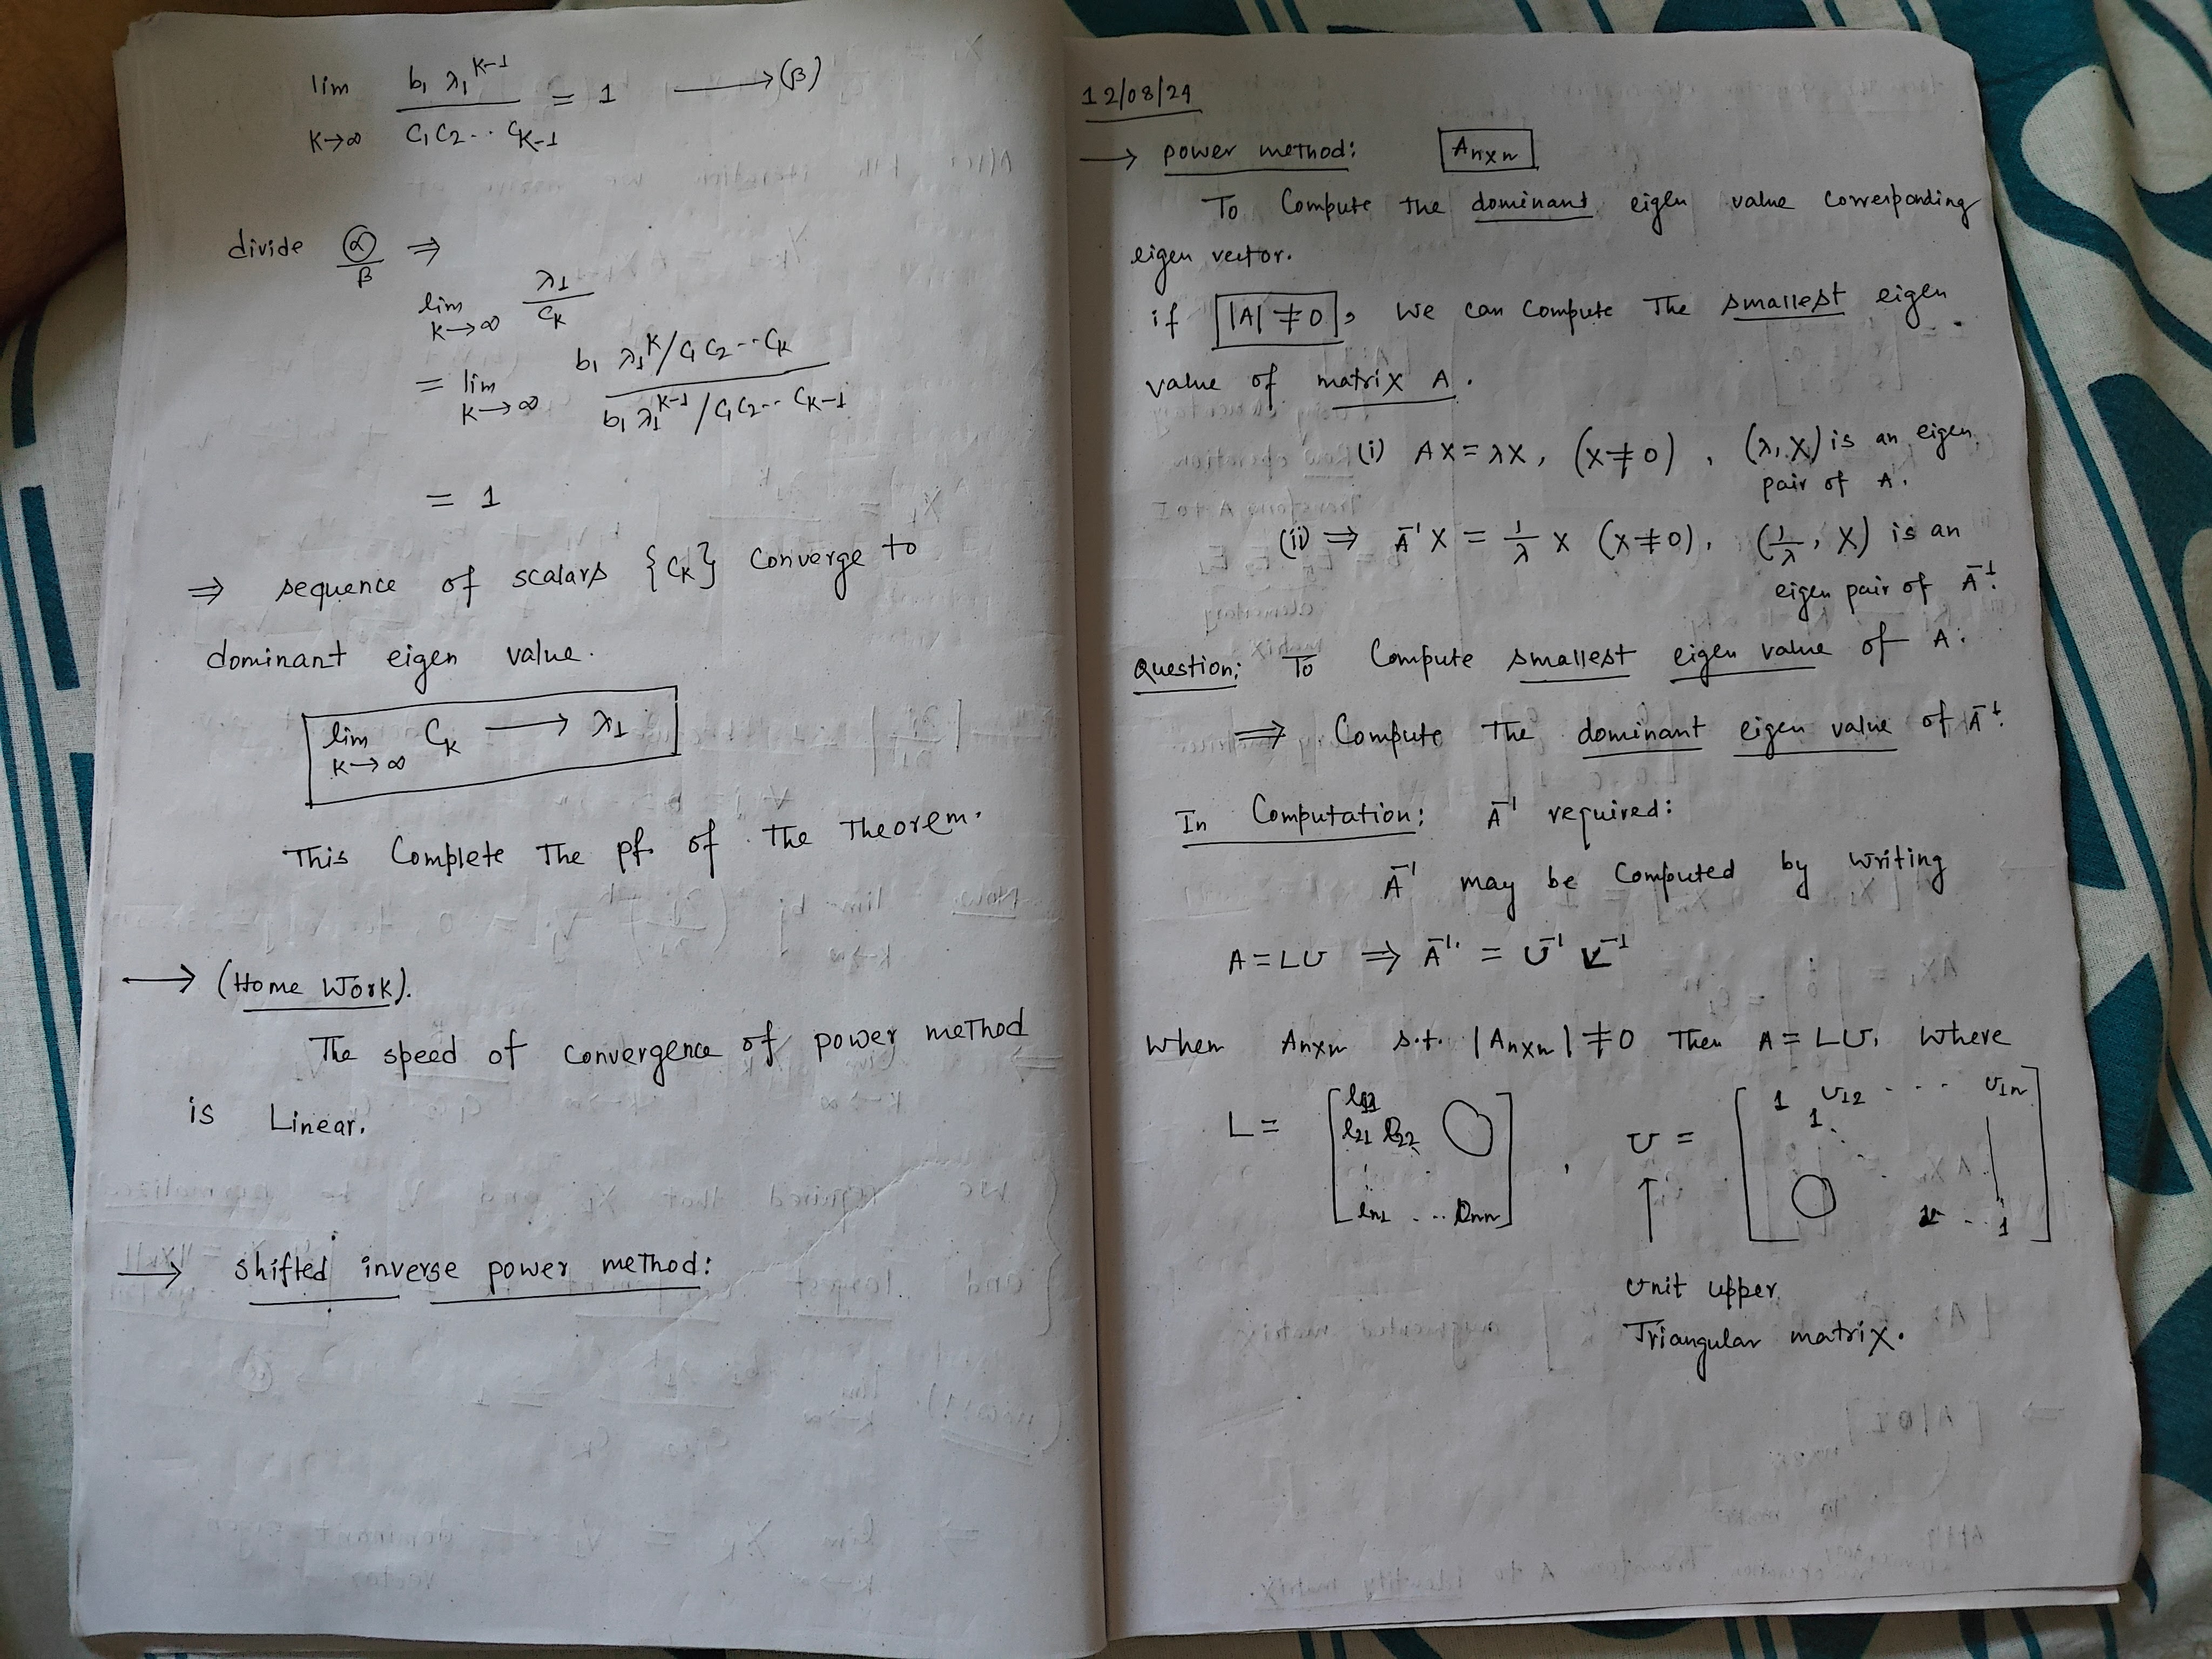 lim b₁ λ₁^(K-1)
K→∞ C₁C₂.. C_K-1 = 1 ⟶(β)
divide α/β ⇒
lim λ₁/C_K
K→∞
= lim b₁ λ₁^K/C₁C₂..C_K
K→∞ b₁ λ₁^(K-1)/C₁C₂..C_K-1
= 1
⇒ sequence of scalars {C_K} Converge to
dominant eigen value.
lim C_K ⟶ λ₁
K→∞
This Complete The pf. of The Theorem.
→ (Home Work).
The speed of convergence of power method
is Linear.
→ shifted inverse power method:
12/08/24
→ power method: A_n×n
To Compute the dominant eigen value corresponding
eigen vector.
if |A| ≠ 0, we can compute The smallest eigen
value of matrix A.
(i) AX = λX, (X≠0), (λ, X) is an eigen
pair of A.
(ii) ⇒ A⁻¹X = 1/λ X (X≠0), (1/λ, X) is an
eigen pair of A⁻¹.
Question: To Compute smallest eigen value of A.
⇒ Compute The dominant eigen value of A⁻¹.
In Computation: A⁻¹ required:
A⁻¹ may be Computed by writing
A = LU ⇒ A⁻¹ = U⁻¹ L⁻¹
when A_n×n s.t. |A_n×n| ≠ 0 Then A = LU, Where
L = [l₁₁
l₂₁ l₂₂ 0
l_n1 ... l_nn] , U = [1 u₁₂ ... u_1n
1
0 ... 1]
Unit upper
Triangular matrix.